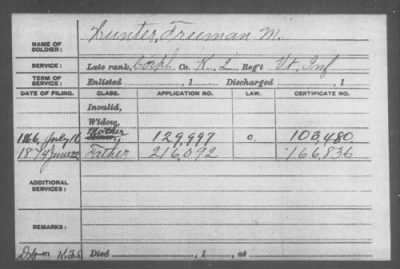 NAME OF SOLDIER: Hunter, Freeman M.
SERVICE: Late rank, Corpl Co. K. 2 Reg't Vt. Inf
TERM OF SERVICE: Enlisted , 1 Discharged , 1
DATE OF FILING. CLASS. APPLICATION NO. LAW. CERTIFICATE NO.
Invalid,
Widow,
1866, July 16 Mother 129,997 c. 103,480
187 June Father 216,092 166,836
ADDITIONAL SERVICES:
REMARKS:
Died , 1 , at